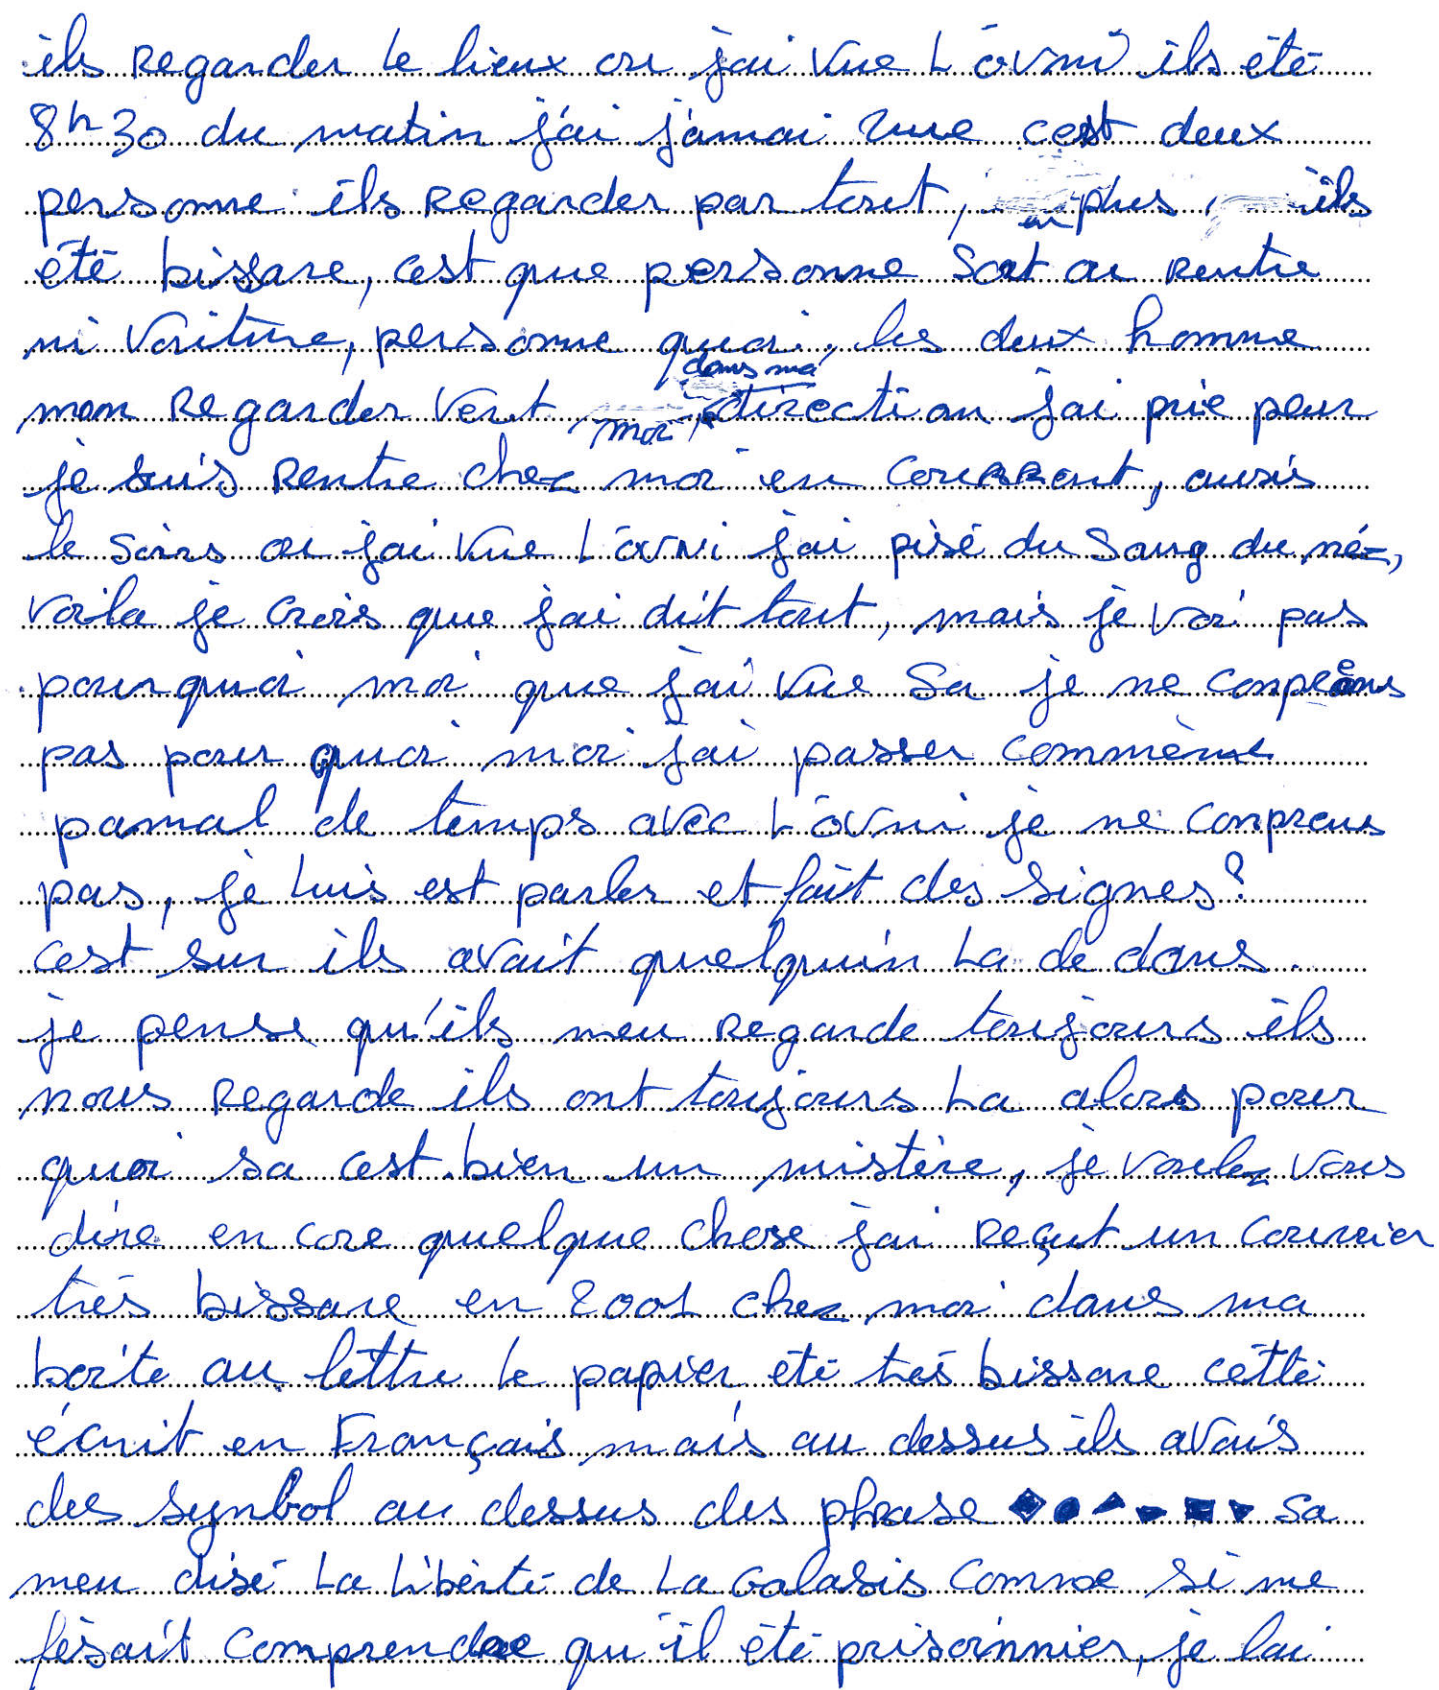 ils Regarder le lieux ou j'ai vue L'ovni ils été
8h30 du matin j'ai j'amai vue cest deux
personne ils Regarder par tout, en plus, ils
été bissare, cest que personne Sort ou Rentre
ni voiture, personne quoi, les deux homme
mon Regarder vert moi, dans ma direction j'ai prie peur
je suis Rentre chez moi en courrant, ausis
le soirs ou j'ai vue L'ovni j'ai pisé du Sang du néz,
voila je crois que j'ai dit tout, mais je voi pas
pourquoi moi que j'ai vue Sa je ne compeens
pas pour quoi moi j'ai passer commème
pamal de temps avec L'ovni je ne conprens
pas, je Luis est parler et fait des signes?
cest sur ils avait quelquin La de dans.
je pense qu'ils meu Regarde toujours ils
nous Regarde ils ont toujours La alors pour
quoi sa cest bien un mistère, je voulez vous
dire en core quelque chose j'ai Reçut un courrier
très bissare en 2001 chez moi dans ma
boite au lettre le papier été très bissare cétté
écrit en Français mais au dessus ils avais
des symbol au dessus des phrase ◆●▲▬■▼ sa
meu disé La Libèrté de La Galasis comme si me
fésait comprendre qu'il été prisoinnier, je lai